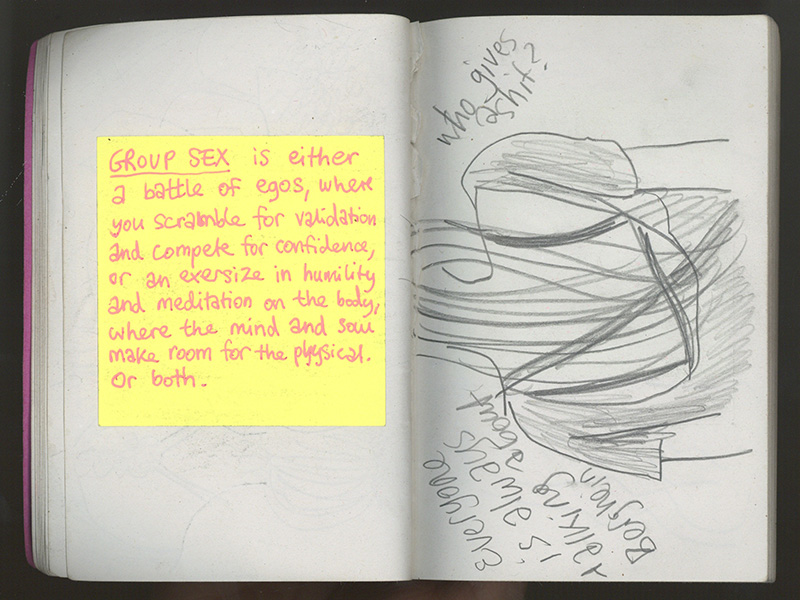 GROUP SEX is either
a battle of egos, where
you scramble for validation
and compete for confidence,
or an exersize in humility
and meditation on the body,
where the mind and soul
make room for the physical.
Or both.
who gives
a shit?
everyone
is always
talking about
Berghein